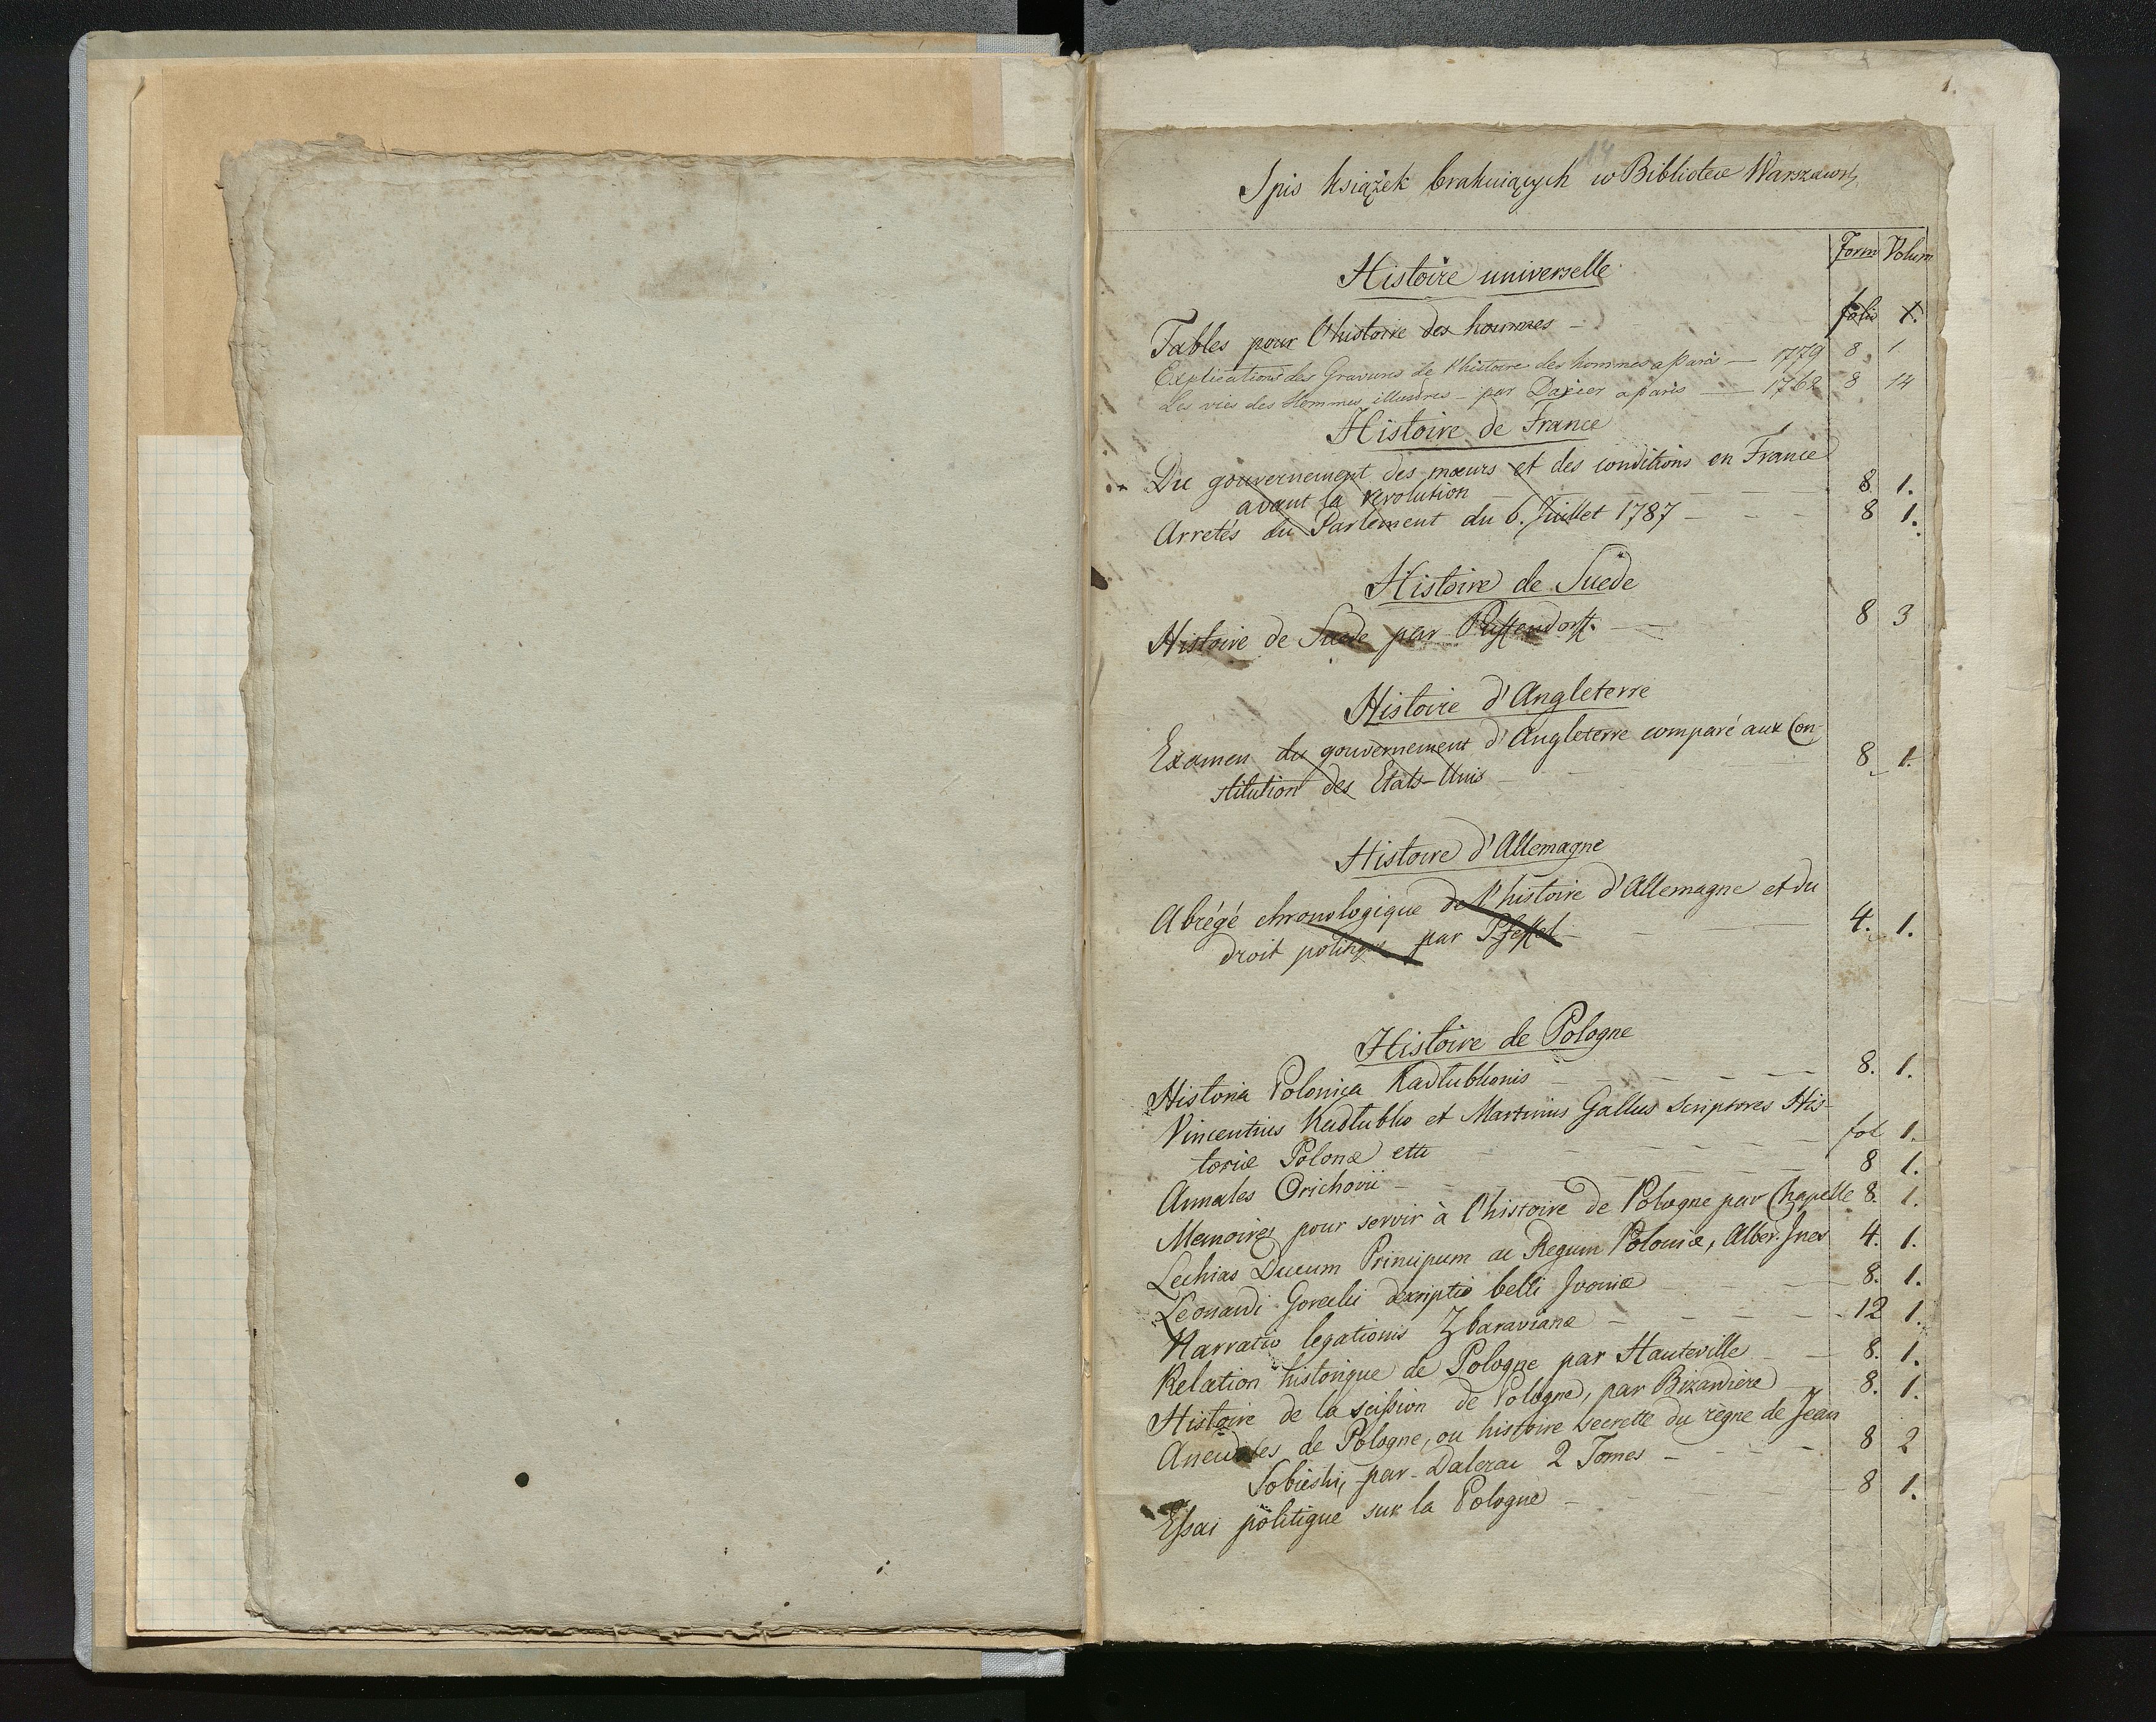 1.
14
Spis książek brakuiących w Bibliotece Warszawsk.
Form Volum
Histoire universelle
Tables pour l'histoire des hommes - folio 1.
Explications des Gravures de l'histoire des hommes a Paris — 1779 8. 1
Les vies des Hommes illustres - par Dacier a paris — 1762 8 14
Histoire de France
Du gouvernement des mœurs et des conditions en France
avant la revolution - - - - 8 1.
Arretés du Parlement du 6. Juillet 1787 - - - 8 1.
Histoire de Suède
Histoire de Suede par Puffendorff. - - 8 3
Histoire d'Angleterre
Examen du gouvernement d'Angleterre comparé aux Con-
stitution des Etats-Unis - - 8 1.
Histoire d'Allemagne
Abrégé chronologique de l'histoire d'Allemagne et du
droit politique par Pfeffel - - 4. 1.
Histoire de Pologne
Historia Polonica Kadlubkonis - - - - 8. 1.
Vincentius Kadlubko et Martinus Gallus Scriptores His-
toriæ Polonæ ettc - - - - fol 1.
Annales Orichovii - - - - 8 1.
Memoires pour servir à l'histoire de Pologne par Chapelle 8. 1.
Lechias Ducum Principum ac Regum Poloniæ, Alber. Ines 4. 1.
Leonardi Gorecki descriptio belli Ivoniæ - - 8. 1.
Narratio legationis Zbaravianæ - - - - 12 1.
Relation historique de Pologne par Hauteville - - 8. 1.
Histoire de la scission de Pologne, par Bizardiere 8. 1.
Anecdotes de Pologne, ou histoire secrette du règne de Jean
Sobieski, par Dalerac 2 Tomes - - - 8 2
Essai politique sur la Pologne - - - 8 1.